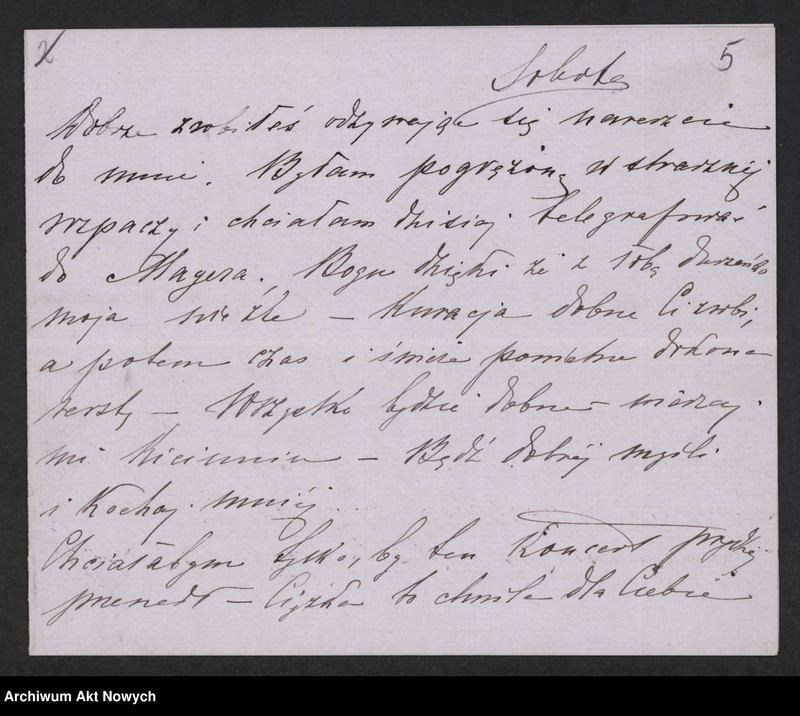 2 5
Sobota
Dobrze zrobiłaś odzywając się nareszcie
do mnie. Byłam pogrążoną w strasznéj
rozpaczy i chciałam dzisiaj telegrafować
do Mayera. Bogu dzięki że z Tobą duszeńko
moja nie źle – Kuracja dobrze Ci zrobi,
a potem czas i świeże powietrze dokona
reszty – Wszystko będzie dobrze – wierzaj
mi Kiciuniu – Bądź dobréj myśli
i Kochaj mniéj...
Chciałabym tylko, by ten Koncert prędzéj
przeszedł – Ciężka to chwila dla Ciebie
Archiwum Akt Nowych